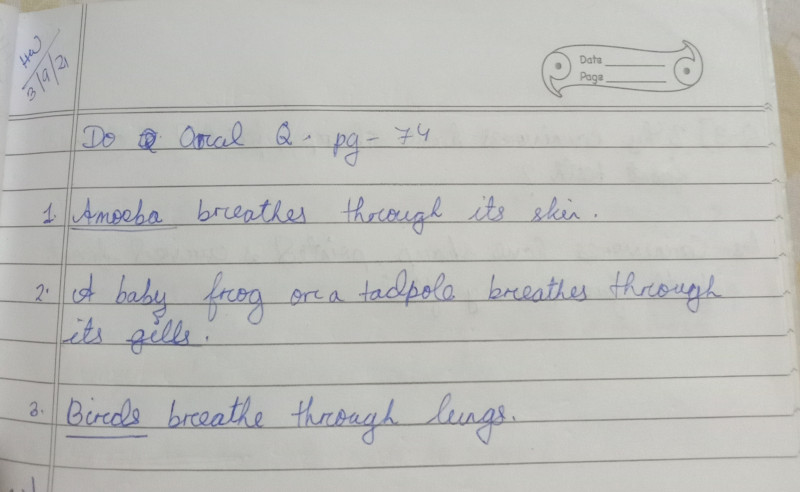 HW
3/9/21
Date
Page
Do Oral Q. pg - 74
1. Amoeba breathes through its skin.
2. A baby frog or a tadpole breathes through
its gills.
3. Birds breathe through lungs.